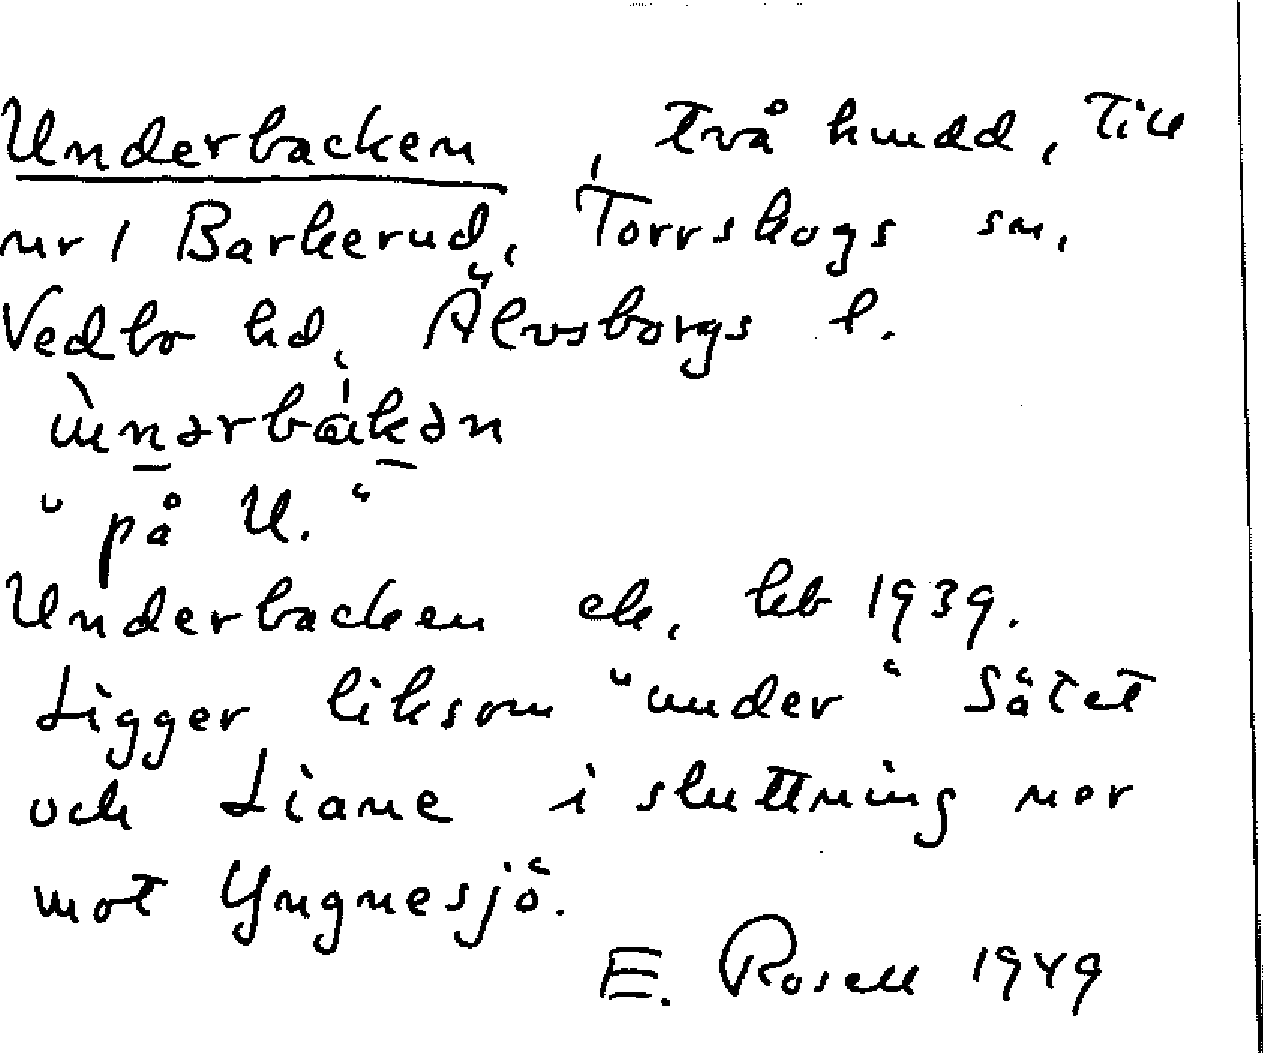 Underbacken, två hmdd, till
nr 1 Barkerud, Torrskogs sn,
Vedbo hd, Älvsborgs l.
"på U."
Underbacken ek, hb 1939.
Ligger liksom "under" Sätet
och Liane i sluttning ner
mot Yngnesjö.
E. Rosell 1949